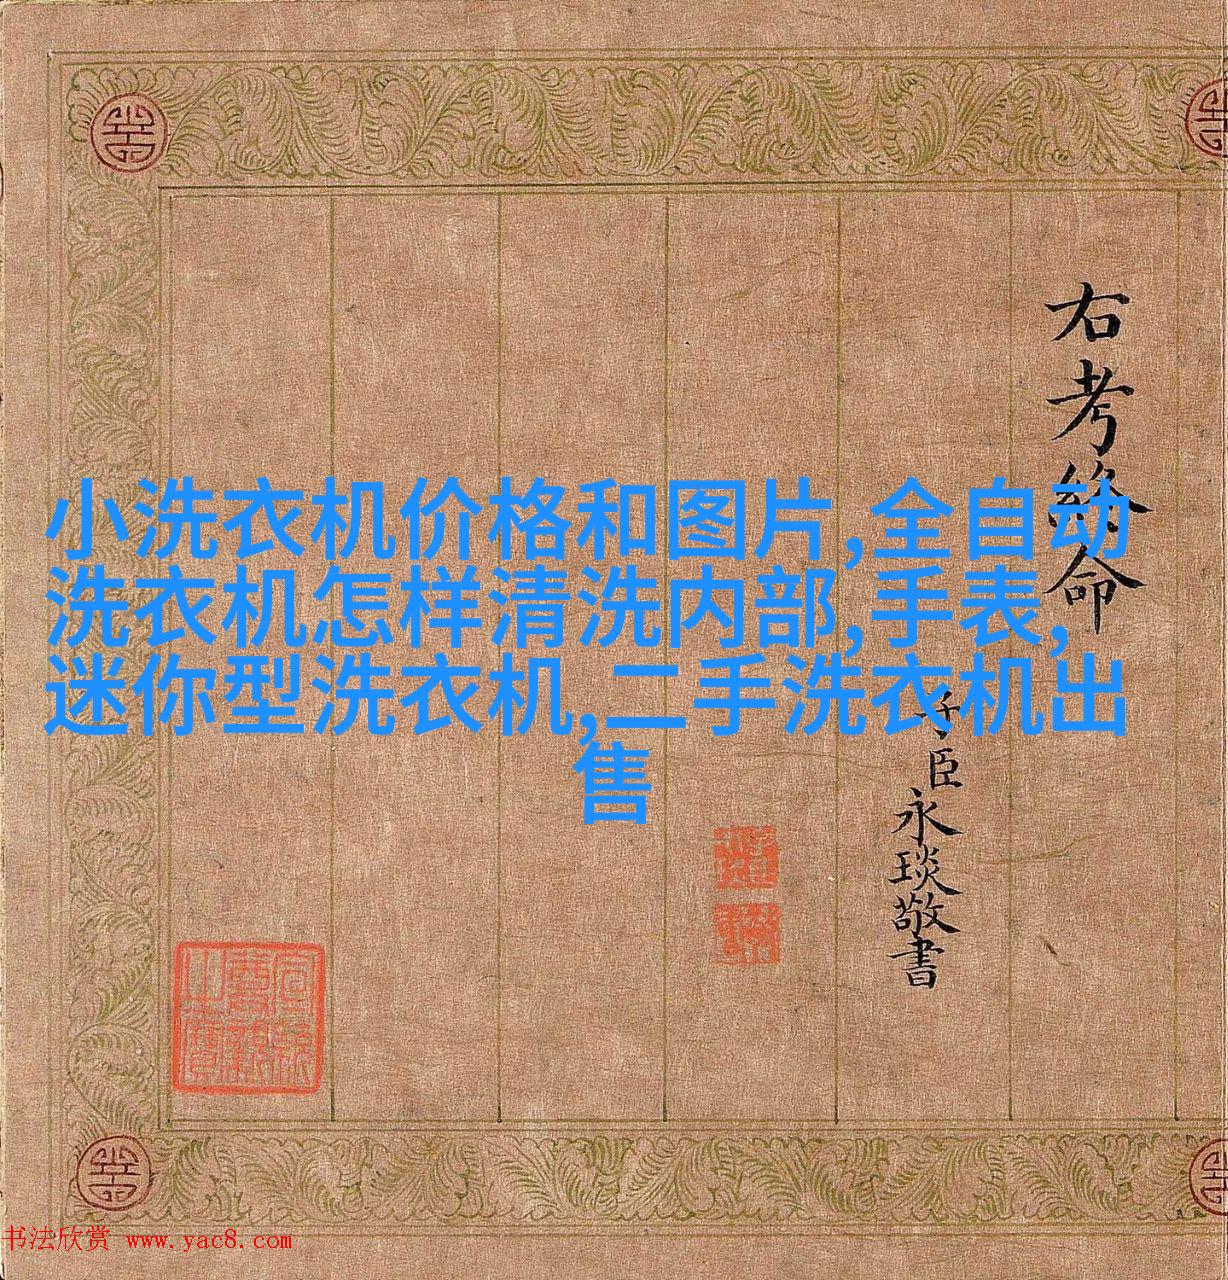 右考終命
子臣永琰敬書
小洗衣机价格和图片,全自动
洗衣机怎样清洗内部,手表,
迷你型洗衣机,二手洗衣机出
售
书法欣赏 www.yac8.com